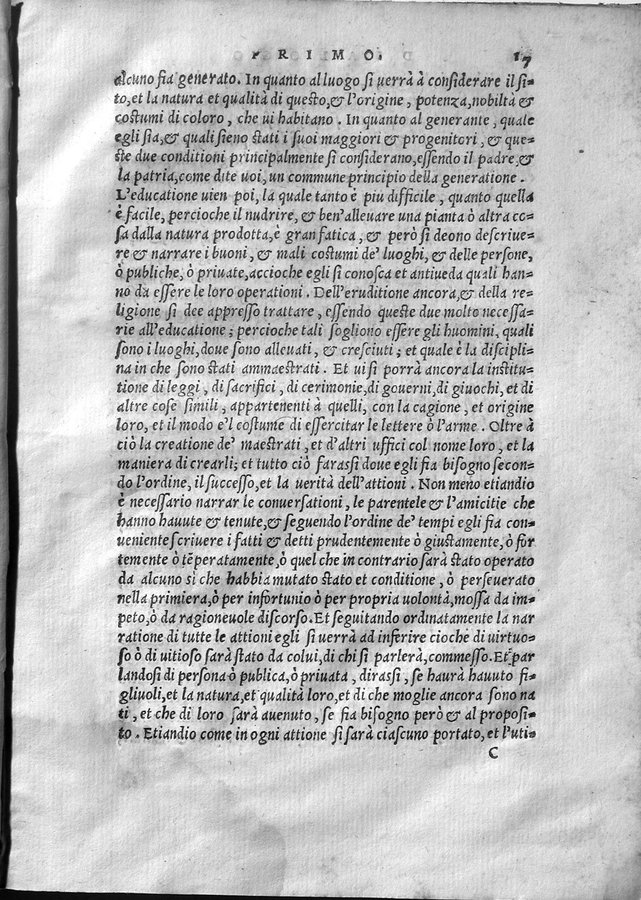 PRIMO. 17
alcuno fia generato. In quanto al luogo si uerrà à considerare il si=
to, et la natura et qualità di questo, & l'origine, potenza, nobiltà &
costumi di coloro, che ui habitano. In quanto al generante, quale
egli sia, & quali sieno stati i suoi maggiori & progenitori, & que=
ste due conditioni principalmente si considerano, essendo il padre, &
la patria, come dite uoi, un commune principio della generatione.
L'educatione uien poi, la quale tanto è piu difficile, quanto quella
è facile, percioche il nudrire, & ben'alleuare una pianta ò altra co=
sa dalla natura prodotta, è gran fatica, & però si deono descriue=
re & narrare i buoni, & mali costumi de' luoghi, & delle persone,
ò publiche, ò priuate, accioche egli si conosca et antiueda quali han=
no da essere le loro operationi. Dell'eruditione ancora, & della re=
ligione si dee appresso trattare, essendo queste due molto necessa=
rie all'educatione; percioche tali sogliono essere gli huomini, quali
sono i luoghi, doue sono alleuati, & cresciuti; et quale è la discipli=
na in che sono stati ammaestrati. Et ui si porrà ancora la institu=
tione di leggi, di sacrifici, di cerimonie, di gouerni, di giuochi, et di
altre cose simili, appartenenti à quelli, con la cagione, et origine
loro, et il modo e'l costume di essercitar le lettere ò l'arme. Oltre à
ciò la creatione de' maestrati, et d'altri uffici col nome loro, et la
maniera di crearli; et tutto ciò farassi doue egli fia bisogno secon=
do l'ordine, il successo, et la uerità dell'attioni. Non meno etiandio
è necessario narrar le conuersationi, le parentele & l'amicitie che
hanno hauute & tenute, & seguendo l'ordine de' tempi egli fia con=
ueniente scriuere i fatti & detti prudentemente ò giustamente, ò for
temente ò tẽperatamente, ò quel che in contrario sarà stato operato
da alcuno si che habbia mutato stato et conditione, ò perseuerato
nella primiera, ò per infortunio ò per propria uolontà, mossa da im=
peto, ò da ragioneuole discorso. Et seguitando ordinatamente la nar
ratione di tutte le attioni egli si uerrà ad inferire cioche di uirtuo=
so ò di uitioso sarà stato da colui, di chi si parlerà, commesso. Et par
landosi di persona ò publica, ò priuata, dirassi, se haurà hauuto fi=
gliuoli, et la natura, et qualità loro, et di che moglie ancora sono na
ti, et che di loro sarà auenuto, se fia bisogno però & al proposi=
to. Etiandio come in ogni attione si sarà ciascuno portato, et l'uti=
C